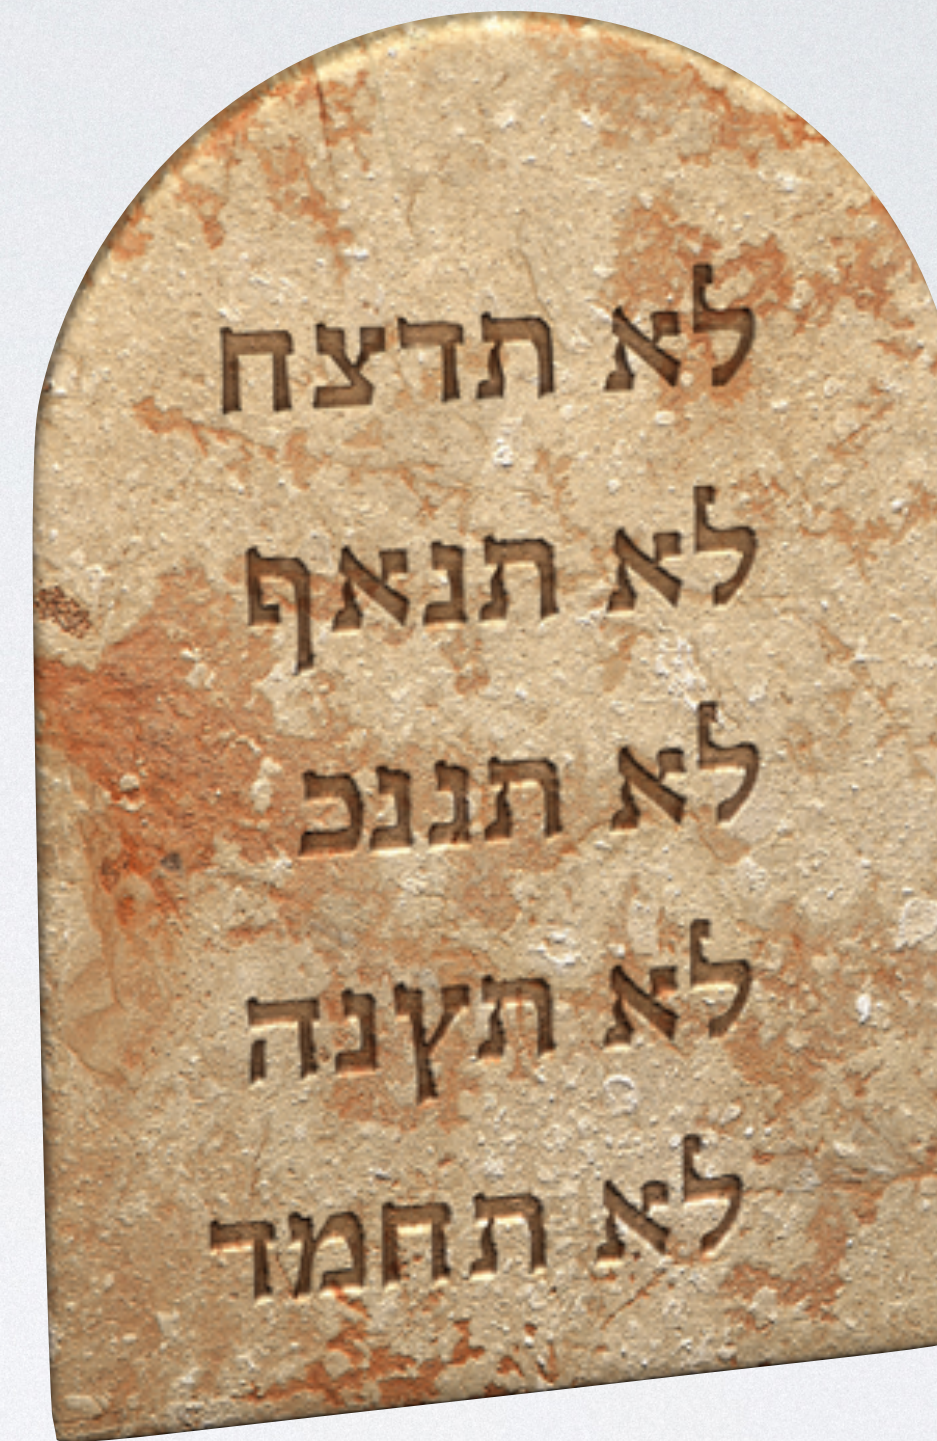 לא תדצח
לא תנאף
לא תגנכ
לא תץנה
לא תחמד